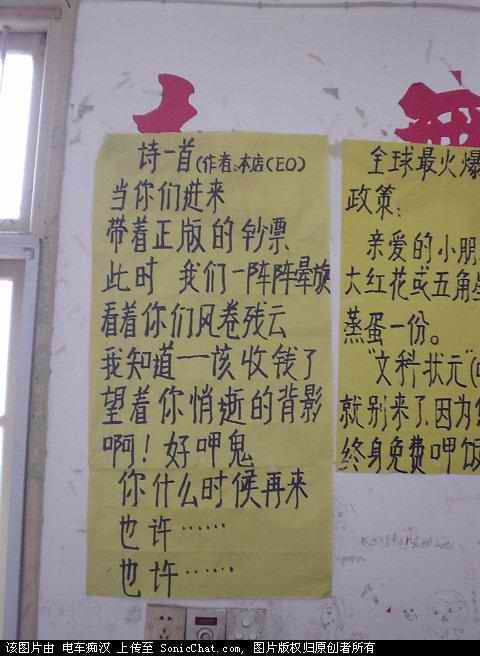 诗一首(作者:本店CEO)
当你们进来
带着正版的钞票
此时 我们一阵阵晕旋
看着你们风卷残云
我知道——该收钱了
望着你悄逝的背影
啊！好呷鬼
你什么时候再来
也许……
也许……
全球最火爆
政策:
亲爱的小朋
大红花或五角星
蒸蛋一份。
"文科状元"(
就别来了,因为
终身免费呷饭
该图片由 电车痴汉 上传至 SonicChat.com, 图片版权归原创者所有